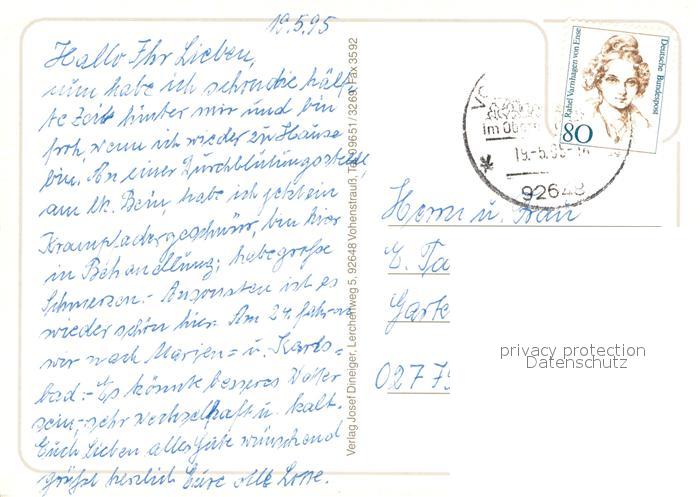 19.5.95
Hallo Ihr Lieben,
nun habe ich schon die hälf-
te Zeit hinter mir und bin
froh, wenn ich wieder zu Hause
bin. An einer Durchblutungsstelle
am lk. Bein, habe ich jetzt ein
Krampfadergeschwür, bin hier
in Behandlung; habe große
Schmerzen.- Ansonsten ist es
wieder schön hier. Am 24. fahren
wir nach Marien= u. Karls=
bad.- Es könnte besseres Wetter
sein, sehr wechselhaft u. kalt.
Euch Lieben alles Gute wünschend
grüßt herzlich Eure alte Lotte.
Verlag Josef Dineiger, Lerchenweg 5, 92648 Vohenstrauß, Tel. 09651/3269, Fax 3592
Rahel Varnhagen von Ense
Deutsche Bundespost
80
im Ober
19.-5.95
92648
Herrn u. Frau
E. Ta
Garte
0277
privacy protection
Datenschutz